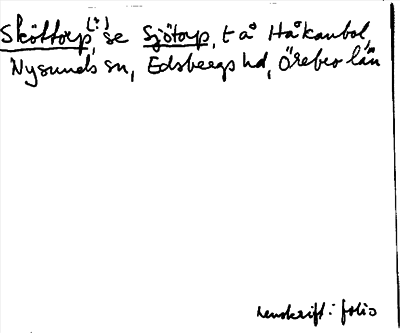 Sköttorp(?), se Sjötorp, t å Håkanbol,
Nysunds sn, Edsbergs hd, Örebro län
renskrift: folio